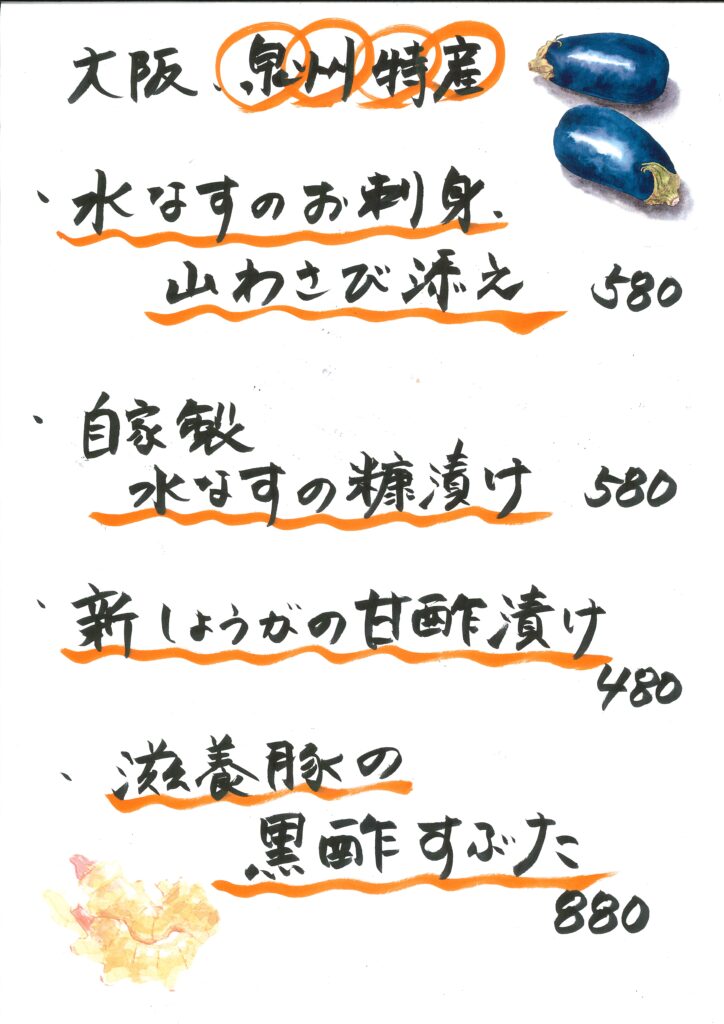 大阪、泉州特産
・水なすのお刺身、
山わさび添え 580
・自家製
水なすの糠漬け 580
・新しょうがの甘酢漬け
480
・滋養豚の
黒酢すぶた
880